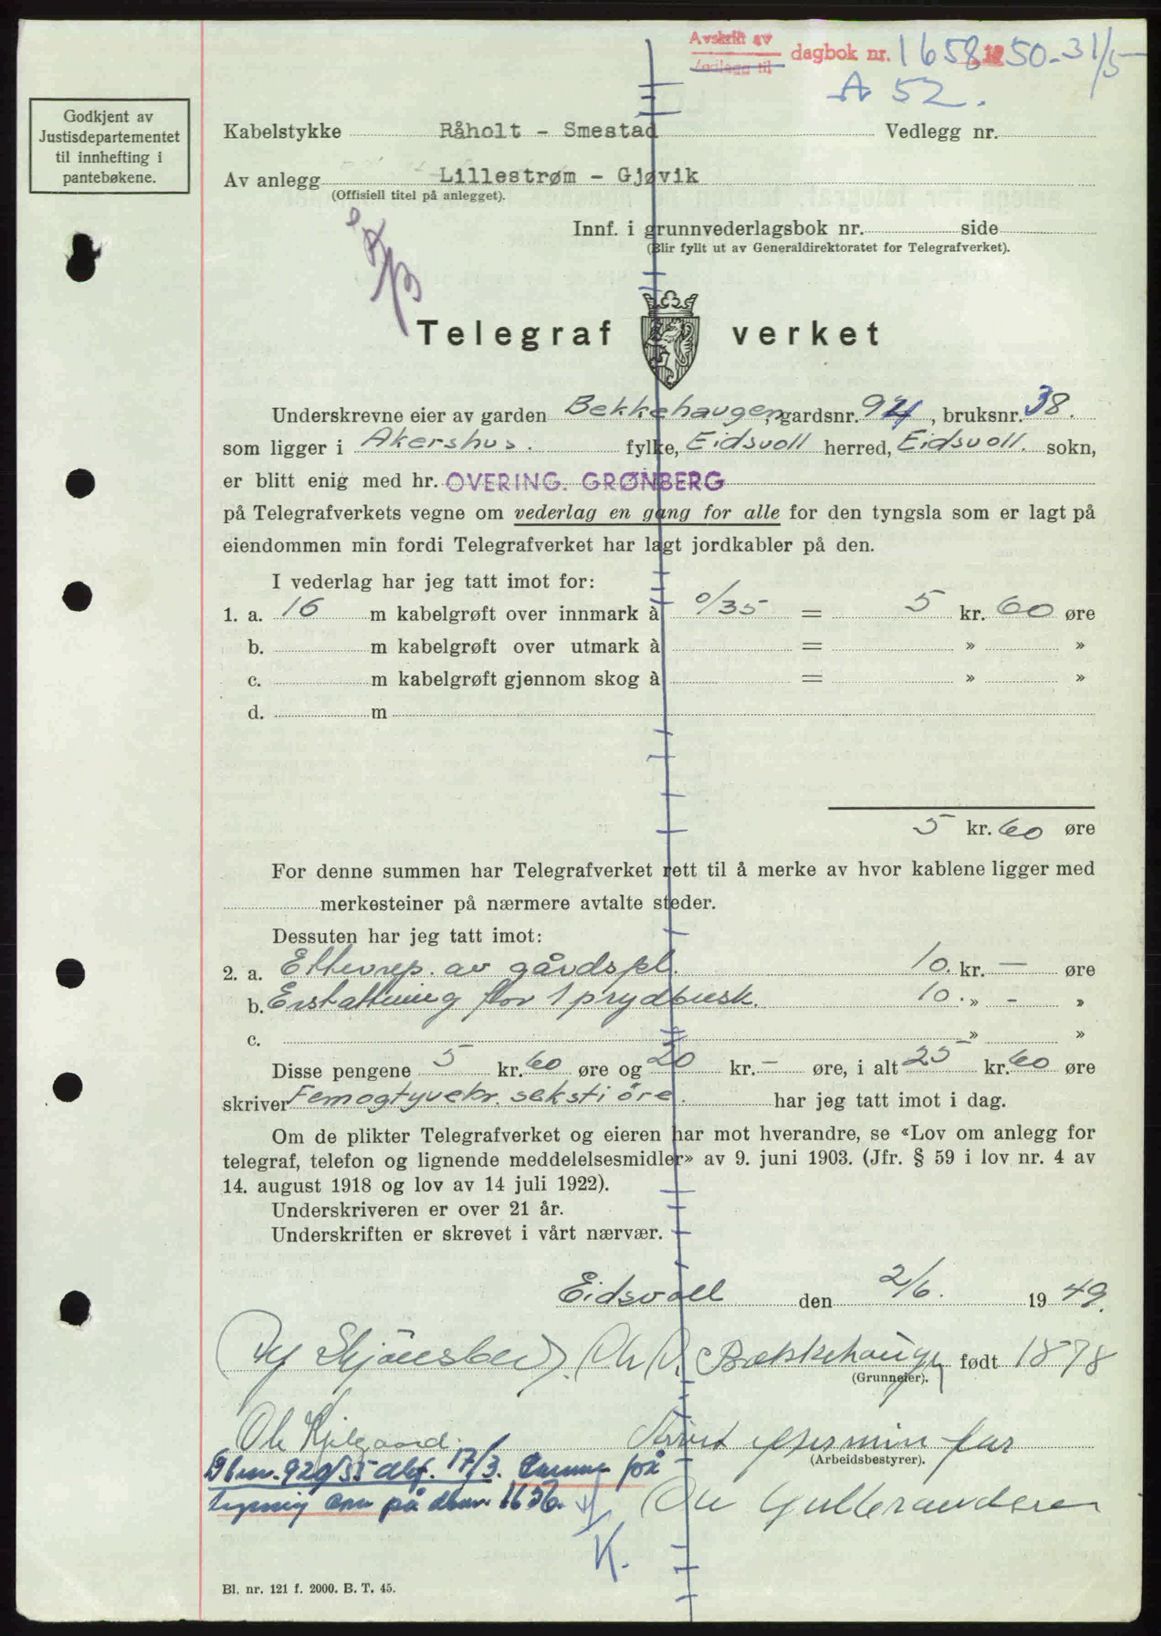 Avskrift av
Vedlegg til
dagbok nr. 1658 1950-31/5
A 52.
Godkjent av
Justisdepartementet
til innhefting i
pantebøkene.
Kabelstykke Råholt - Smestad Vedlegg nr.
Av anlegg Lillestrøm - Gjøvik
(Offisiell titel på anlegget).
Innf. i grunnvederlagsbok nr. side
(Blir fyllt ut av Generaldirektoratet for Telegrafverket).
Telegrafverket
Underskrevne eier av garden Bekkehaugen, gardsnr. 94, bruksnr. 38.
som ligger i Akershus. fylke, Eidsvoll herred, Eidsvoll. sokn,
er blitt enig med hr. OVERING. GRØNBERG
på Telegrafverkets vegne om vederlag en gang for alle for den tyngsla som er lagt på
eiendommen min fordi Telegrafverket har lagt jordkabler på den.
I vederlag har jeg tatt imot for:
1. a. 16 m kabelgrøft over innmark à 0/35 = 5 kr. 60 øre
b. m kabelgrøft over utmark à = » »
c. m kabelgrøft gjennom skog à = » »
d. m
5 kr. 60 øre
For denne summen har Telegrafverket rett til å merke av hvor kablene ligger med
merkesteiner på nærmere avtalte steder.
Dessuten har jeg tatt imot:
2. a. Etterrep. av gårdspl. 10. kr. — øre
b. Erstattning for 1 prydbusk. 10. » - »
c. » »
Disse pengene 5 kr. 60 øre og 20 kr. — øre, i alt 25 kr. 60 øre
skriver Femogtyvekr. seksti öre. har jeg tatt imot i dag.
Om de plikter Telegrafverket og eieren har mot hverandre, se «Lov om anlegg for
telegraf, telefon og lignende meddelelsesmidler» av 9. juni 1903. (Jfr. § 59 i lov nr. 4 av
14. august 1918 og lov av 14 juli 1922).
Underskriveren er over 21 år.
Underskriften er skrevet i vårt nærvær.
Eidsvoll den 2/6. 1949.
Bækkehaugen født 1878
(Grunneier).
Ole
min far
(Arbeidsbestyrer).
Dbnr. 920/55 17/3. på
på dbnr. 1636
K.
Bl. nr. 121 f. 2000. B. T. 45.